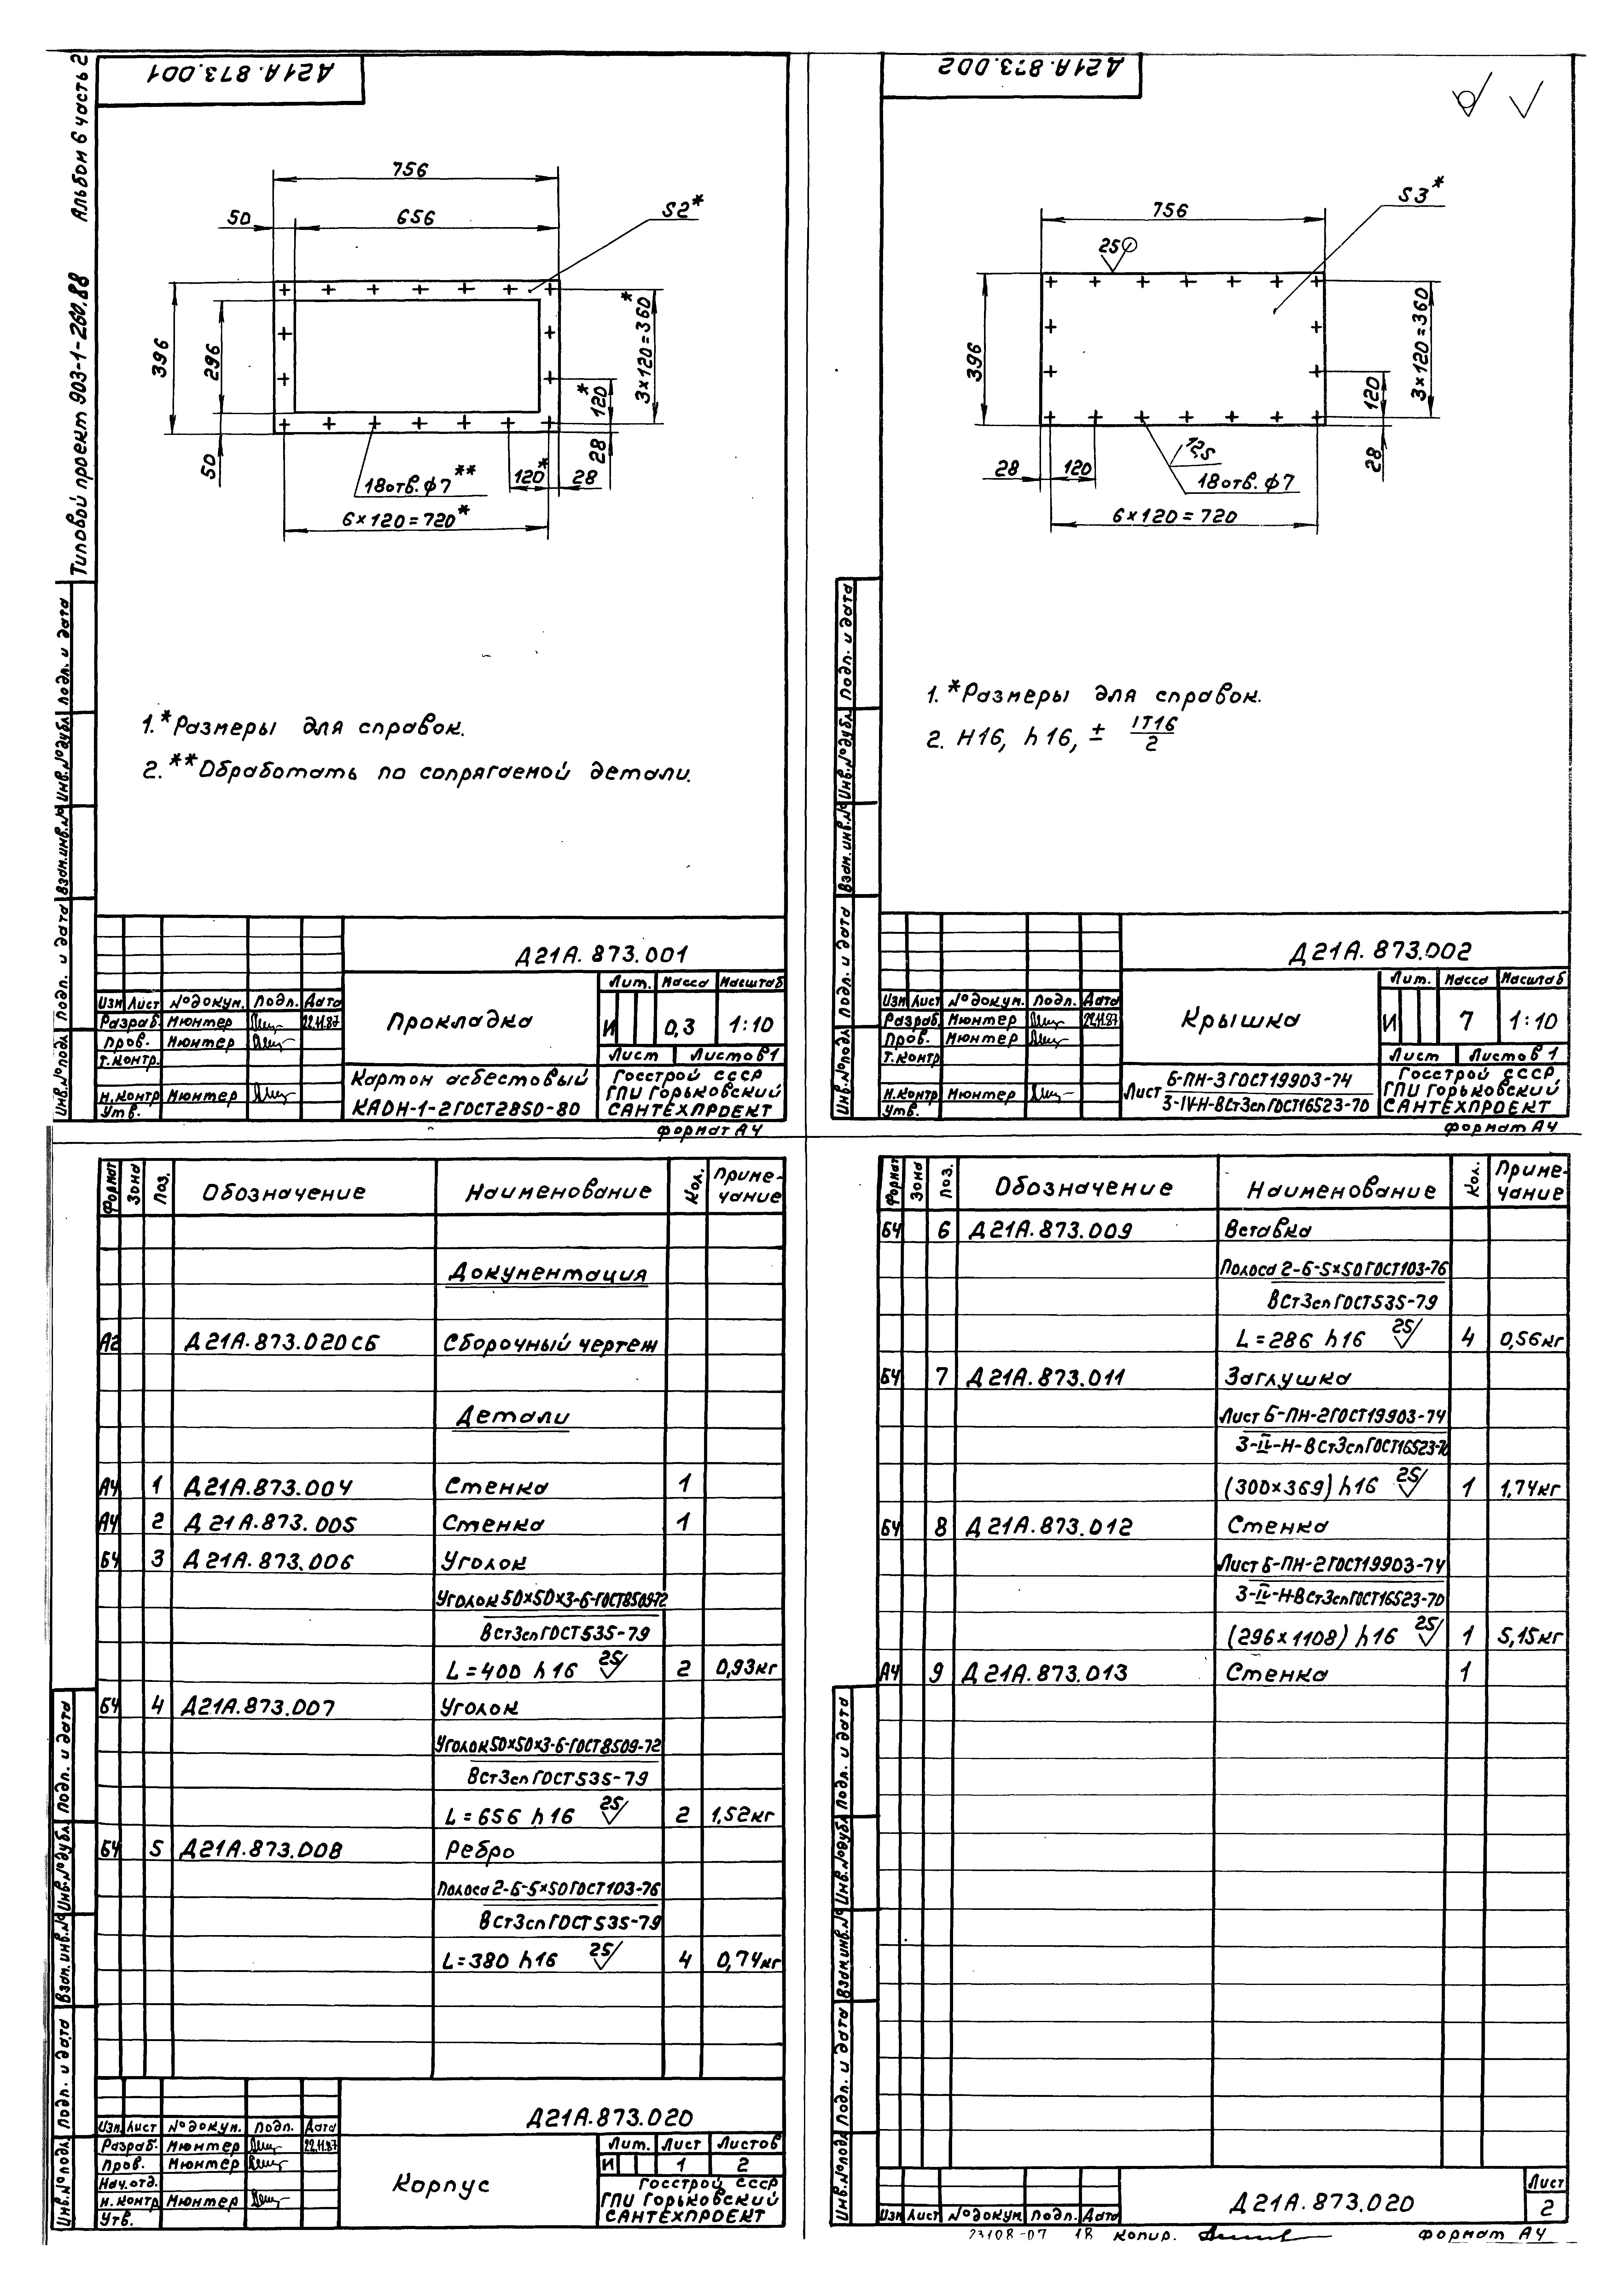 Типовой проект 903-1-260.88 Альбом 6 часть 2
Д21А.873.001
756
50
656
S2*
396
296
50
3×120=360*
120*
28
18отв.ф7**
120*
28
6×120=720*
1.*Размеры для справок.
2.**Обработать по сопрягаемой детали.
Инв.№подл.
Подп. и дата
Взам.инв.№
Инв.№дубл.
Подп. и дата
Д21А.873.001
Изм Лист №докум. Подп. Дата
Разраб. Мюнтер 22.11.87
Пров. Мюнтер
Т.контр.
Н.контр Мюнтер
Утв.
Прокладка
Лит. Масса Масштаб
И 0,3 1:10
Лист Листов 1
Картон асбестовый
КАОН-1-2 ГОСТ2850-80
Госстрой СССР
ГПИ Горьковский
САНТЕХПРОЕКТ
Формат А4
Д21А.873.002
756
S3*
25
396
3×120=360
120
28
28
120
12,5
18отв.ф7
6×120=720
1.*Размеры для справок.
2. Н16, h16, ± IT16
2
Инв.№подл
Подп. и дата
Взам.инв.№
Инв.№дубл.
Подп. и дата
Д21А.873.002
Изм Лист №докум. Подп. Дата
Разраб. Мюнтер 22.11.87
Пров. Мюнтер
Т.контр
Н.контр Мюнтер
Утв.
Крышка
Лит. Масса Масштаб
И 7 1:10
Лист Листов 1
Лист Б-ПН-3 ГОСТ19903-74
3-IV-Н-ВСт3сп ГОСТ16523-70
Госстрой СССР
ГПИ Горьковский
САНТЕХПРОЕКТ
Формат А4
Формат Зона Поз. Обозначение Наименование Кол. Примечание
Документация
А2 Д21А.873.020СБ Сборочный чертеж
Детали
А4 1 Д21А.873.004 Стенка 1
А4 2 Д21А.873.005 Стенка 1
БЧ 3 Д21А.873.006 Уголок
Уголок 50×50×3-Б-ГОСТ8509-72
ВСт3сп ГОСТ535-79
L=400 h16 25 2 0,93кг
БЧ 4 Д21А.873.007 Уголок
Уголок 50×50×3-Б-ГОСТ8509-72
ВСт3сп ГОСТ535-79
L=656 h16 25 2 1,52кг
БЧ 5 Д21А.873.008 Ребро
Полоса 2-Б-5×50 ГОСТ103-76
ВСт3сп ГОСТ535-79
L=380 h16 25 4 0,74кг
Инв.№подл.
Подп. и дата
Взам.инв.№
Инв.№дубл.
Подп. и дата
Д21А.873.020
Изм. Лист №докум. Подп. Дата
Разраб. Мюнтер 22.11.87
Пров. Мюнтер
Нач.отд.
Н.контр Мюнтер
Утв.
Корпус
Лит. Лист Листов
И 1 2
Госстрой СССР
ГПИ Горьковский
САНТЕХПРОЕКТ
Формат Зона Поз. Обозначение Наименование Кол. Примечание
БЧ 6 Д21А.873.009 Вставка
Полоса 2-Б-5×50 ГОСТ103-76
ВСт3сп ГОСТ535-79
L=286 h16 25 4 0,56кг
БЧ 7 Д21А.873.011 Заглушка
Лист Б-ПН-2 ГОСТ19903-74
3-IV-Н-ВСт3сп ГОСТ16523-70
(300×369) h16 25 1 1,74кг
БЧ 8 Д21А.873.012 Стенка
Лист Б-ПН-2 ГОСТ19903-74
3-IV-Н-ВСт3сп ГОСТ16523-70
(296×1108) h16 25 1 5,15кг
А4 9 Д21А.873.013 Стенка 1
Инв.№подл.
Подп. и дата
Взам.инв.№
Инв.№дубл.
Подп. и дата
Изм Лист №докум Подп. Дата
Д21А.873.020
Лист
2
23108-07 18 Копир. Формат А4